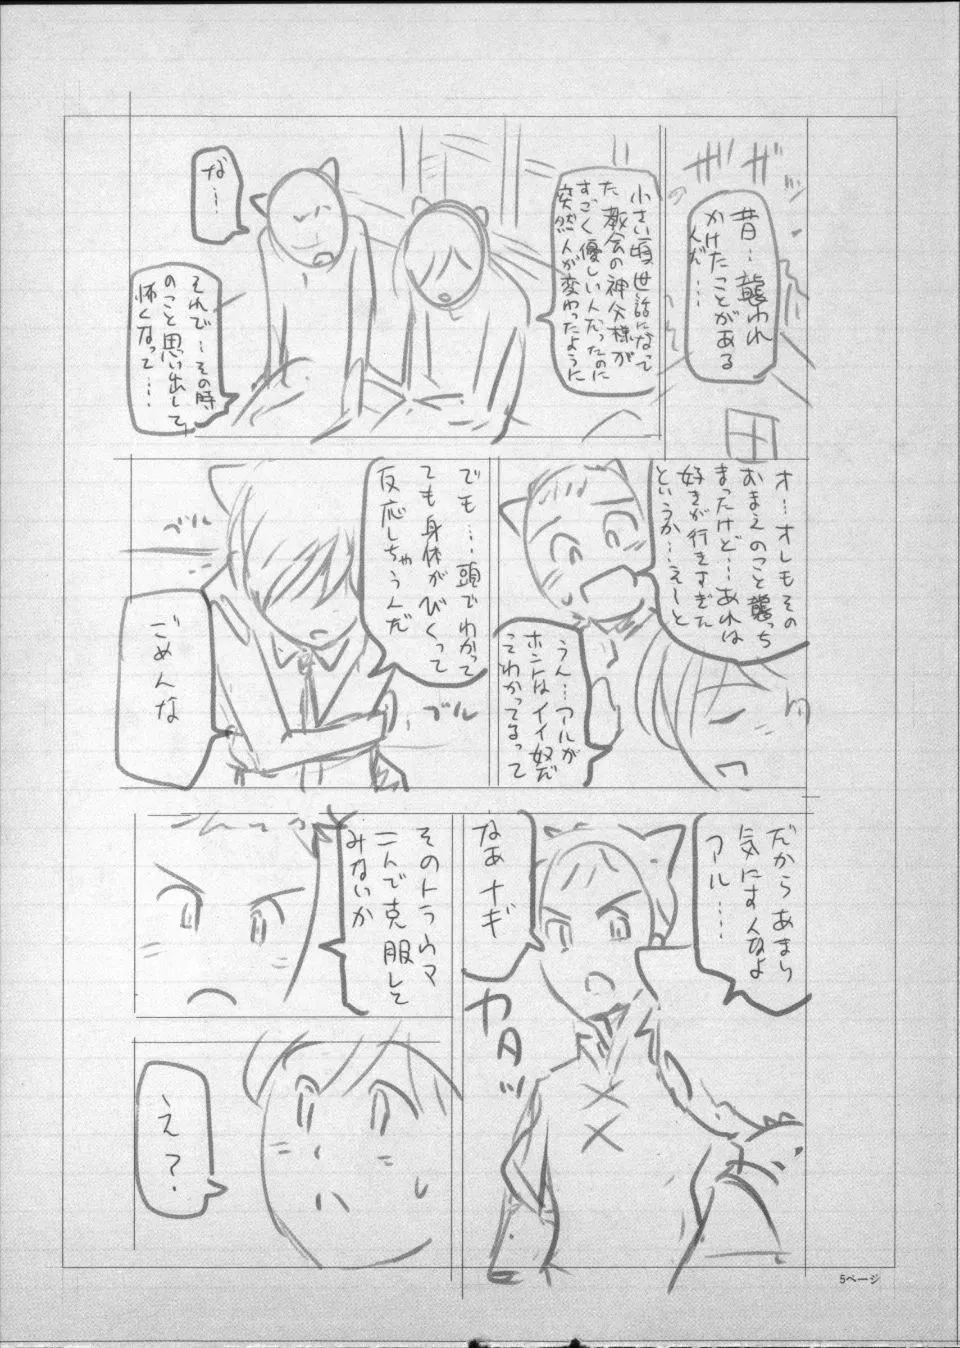 ザザ
昔…襲われ
かけたことがある
んだ……
小さい頃世話になって
た教会の神父様が
すごく優しい人だったのに
突然人が変わったように
な…
それで…その時
のこと思い出して
怖くなって……
オ…オレもその
おまえのこと襲っち
まったけど…あれは
好きが行きすぎた
というか…えーと
うん…アルが
ホントはイイ奴だ
ってわかってるって
でも…頭でわかって
ても身体がびくって
反応しちゃうんだ
ブル
ブル
ごめんな
だからあまり
気にすんなよ
アル……
なあナギ
カタッ
そのトラウマ
二人で克服して
みないか
え?
5ページ